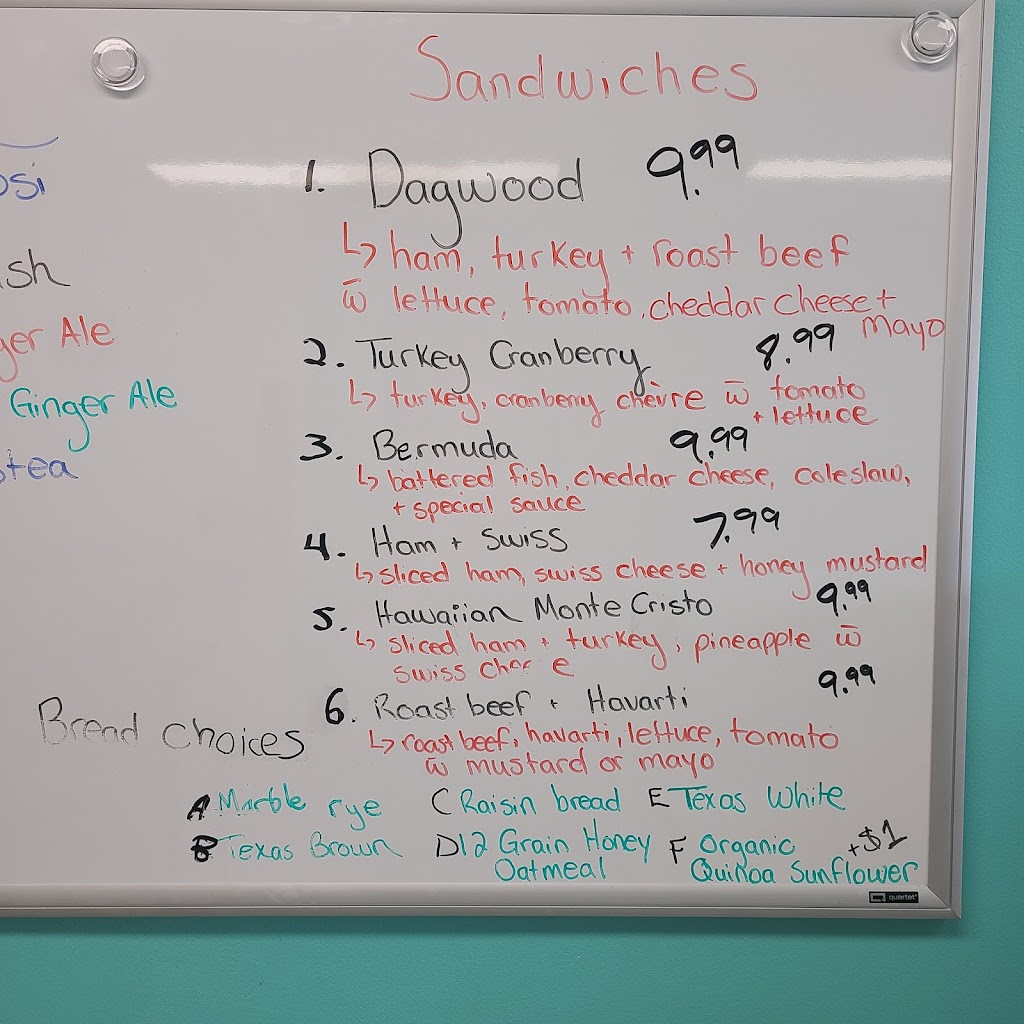 Sandwiches
1. Dagwood 9.99
↳ ham, turkey + roast beef
w̄ lettuce, tomato, cheddar cheese +
mayo
2. Turkey Cranberry 8.99
↳ turkey, cranberry chèvre w̄ tomato
+ lettuce
3. Bermuda 9.99
↳ battered fish, cheddar cheese, coleslaw,
+ special sauce
4. Ham + Swiss 7.99
↳ sliced ham, swiss cheese + honey mustard
5. Hawaiian Monte Cristo 9.99
↳ sliced ham + turkey, pineapple w̄
swiss
6. Roast beef + Havarti 9.99
↳ roast beef, havarti, lettuce, tomato
w̄ mustard or mayo
Ale
Ginger Ale
Bread choices
A Marble rye
B Texas Brown
C Raisin bread
D 12 Grain Honey
Oatmeal
E Texas White
F Organic +$1
Quinoa Sunflower
quartet